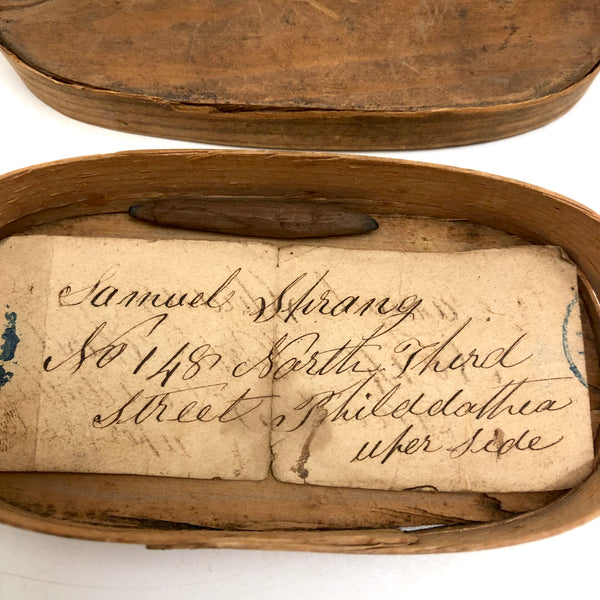 Samuel Strang
No 148 North Third
Street Philddathea
uper side